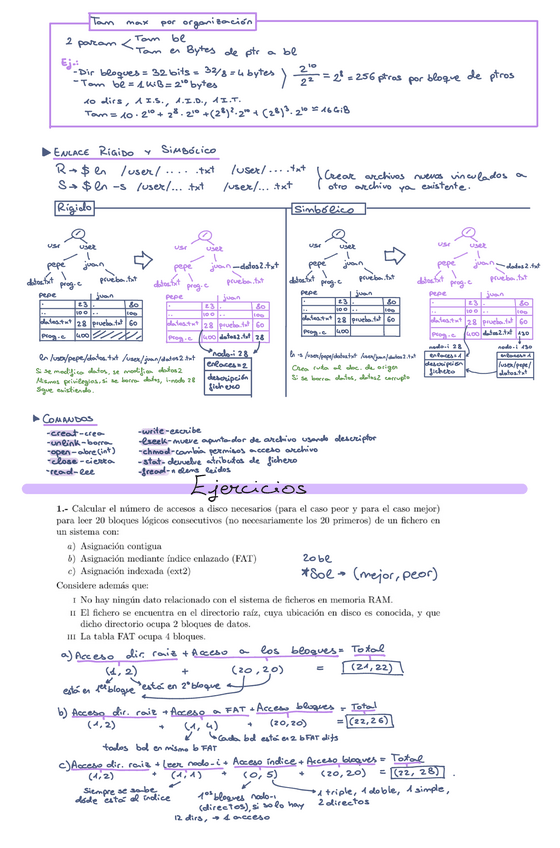 Tam max por organización
2 param < Tam bl
Tam en Bytes de ptr a bl
Ej.:
- Dir bloques = 32 bits = 32/8 = 4 bytes
- Tam bl = 1KB = 2^10 bytes
2^10 / 2^2 = 2^8 = 256 ptros por bloque de ptros
10 dirs, 1 I.S., 1 I.D., 1 I.T.
Tam = 10 · 2^10 + 2^8 · 2^10 + (2^8)^2 · 2^10 + (2^8)^3 · 2^10 = 16 GiB
▶ ENLACE RÍGIDO Y SIMBÓLICO
R → $ ln /user/ .... .txt /user/....txt
S → $ ln -s /user/... .txt /user/... .txt
Crear archivos nuevos vinculados a
otro archivo ya existente.
Rígido
/
usr user
pepe juan
datos.txt prog.c prueba.txt
pepe juan
. 23 . 80
.. 100 .. 100
datos.txt 28 prueba.txt 60
prog.c 400
/
usr user
pepe juan datos2.txt
datos.txt prog.c prueba.txt
pepe juan
. 23 . 80
.. 100 .. 100
datos.txt 28 prueba.txt 60
prog.c 400 datos2.txt 28
nodo-i 28
enlaces=2
descripción
fichero
ln /user/pepe/datos.txt /user/juan/datos2.txt
Si se modifica datos, se modifica datos2
Mismos privilegios, si se borra datos, i-nodo 28
sigue existiendo.
Simbólico
/
usr user
pepe juan
datos.txt prog.c prueba.txt
pepe juan
. 23 . 80
.. 100 .. 100
datos.txt 28 prueba.txt 60
prog.c 400
/
usr user
pepe juan datos2.txt
datos.txt prog.c prueba.txt
pepe juan
. 23 . 80
.. 100 .. 100
datos.txt 28 prueba.txt 60
prog.c 400 datos2.txt 130
nodo-i 28
enlaces=1
descripción
fichero
nodo-i 130
enlaces=1
/user/pepe/
datos.txt
ln -s /user/pepe/datos.txt /user/juan/datos2.txt
Crea ruta al doc. de origen
Si se borra datos, datos2 corrupto
▶ COMANDOS
- creat - crea
- unlink - borra
- open - abre (int)
- close - cierra
- read - lee
- write - escribe
- lseek - mueve apuntador de archivo usando descriptor
- chmod - cambia permisos acceso archivo
- stat - devuelve atributos de fichero
- fread - n elems leidos
Ejercicios
1.- Calcular el número de accesos a disco necesarios (para el caso peor y para el caso mejor)
para leer 20 bloques lógicos consecutivos (no necesariamente los 20 primeros) de un fichero en
un sistema con:
a) Asignación contigua
b) Asignación mediante índice enlazado (FAT)
c) Asignación indexada (ext2)
20 bl
*Sol → (mejor, peor)
Considere además que:
I No hay ningún dato relacionado con el sistema de ficheros en memoria RAM.
II El fichero se encuentra en el directorio raíz, cuya ubicación en disco es conocida, y que
dicho directorio ocupa 2 bloques de datos.
III La tabla FAT ocupa 4 bloques.
a) Acceso dir. raiz + Acceso a los bloques = Total
(1, 2) + (20, 20) = (21, 22)
está en 1er bloque está en 2º bloque
b) Acceso dir. raiz + Acceso a FAT + Acceso bloques = Total
(1, 2) + (1, 4) + (20, 20) = (22, 26)
Cada bd está en 2 b FAT difs
todos bd en mismo b FAT
c) Acceso dir. raiz + Leer nodo-i + Acceso índice + Acceso bloques = Total
(1, 2) + (1, 1) + (0, 5) + (20, 20) = (22, 28).
Siempre se sabe
dónde está el índice
1os bloques nodo-i
(directos), si solo hay
12 dirs, → 1 acceso
1 triple, 1 doble, 1 simple,
2 directos